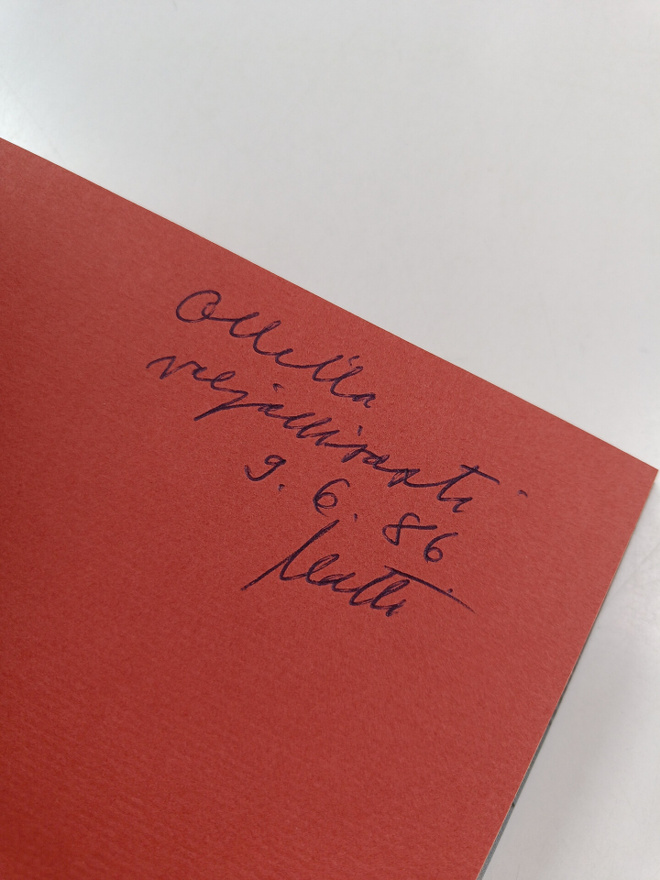 Ollella
veljellisesti
9. 6. 86
Matti